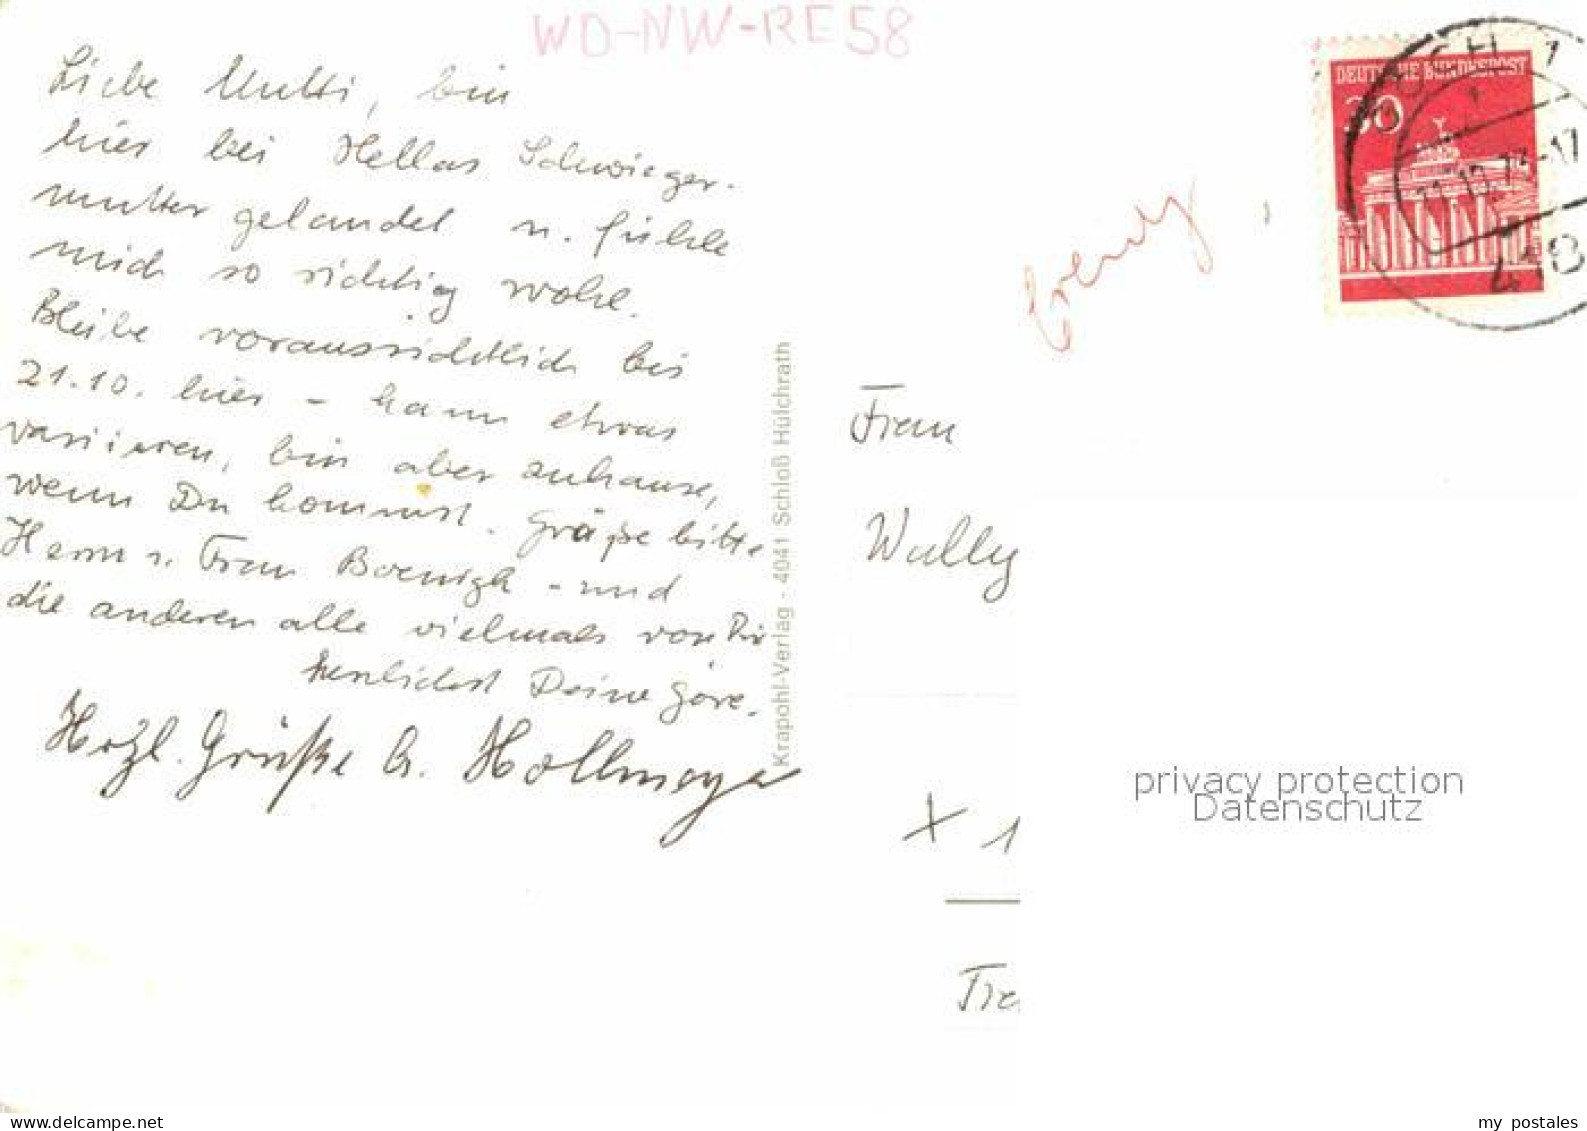 WD-NW-RE58
Liebe Mutti, bin
hier bei Hellas Schwieger-
mutter gelandet u. fühle
mich so richtig wohl.
Bleibe voraussichtlich bis
21.10. hier - kann etwas
variieren, bin aber zuhause,
wenn Du kommst. Grüße bitte
Herrn u. Frau Boenigk - und
die anderen alle vielmals von Dir
herzlichst Deine Göre.
Herzl. Grüße
Krapohl-Verlag - 4041 Schloß Hülchrath
DEUTSCHE BUNDESPOST
30
GOCH 1
11.10.73-17
418
Frau
Wally
X 1
privacy protection
Datenschutz
my postales